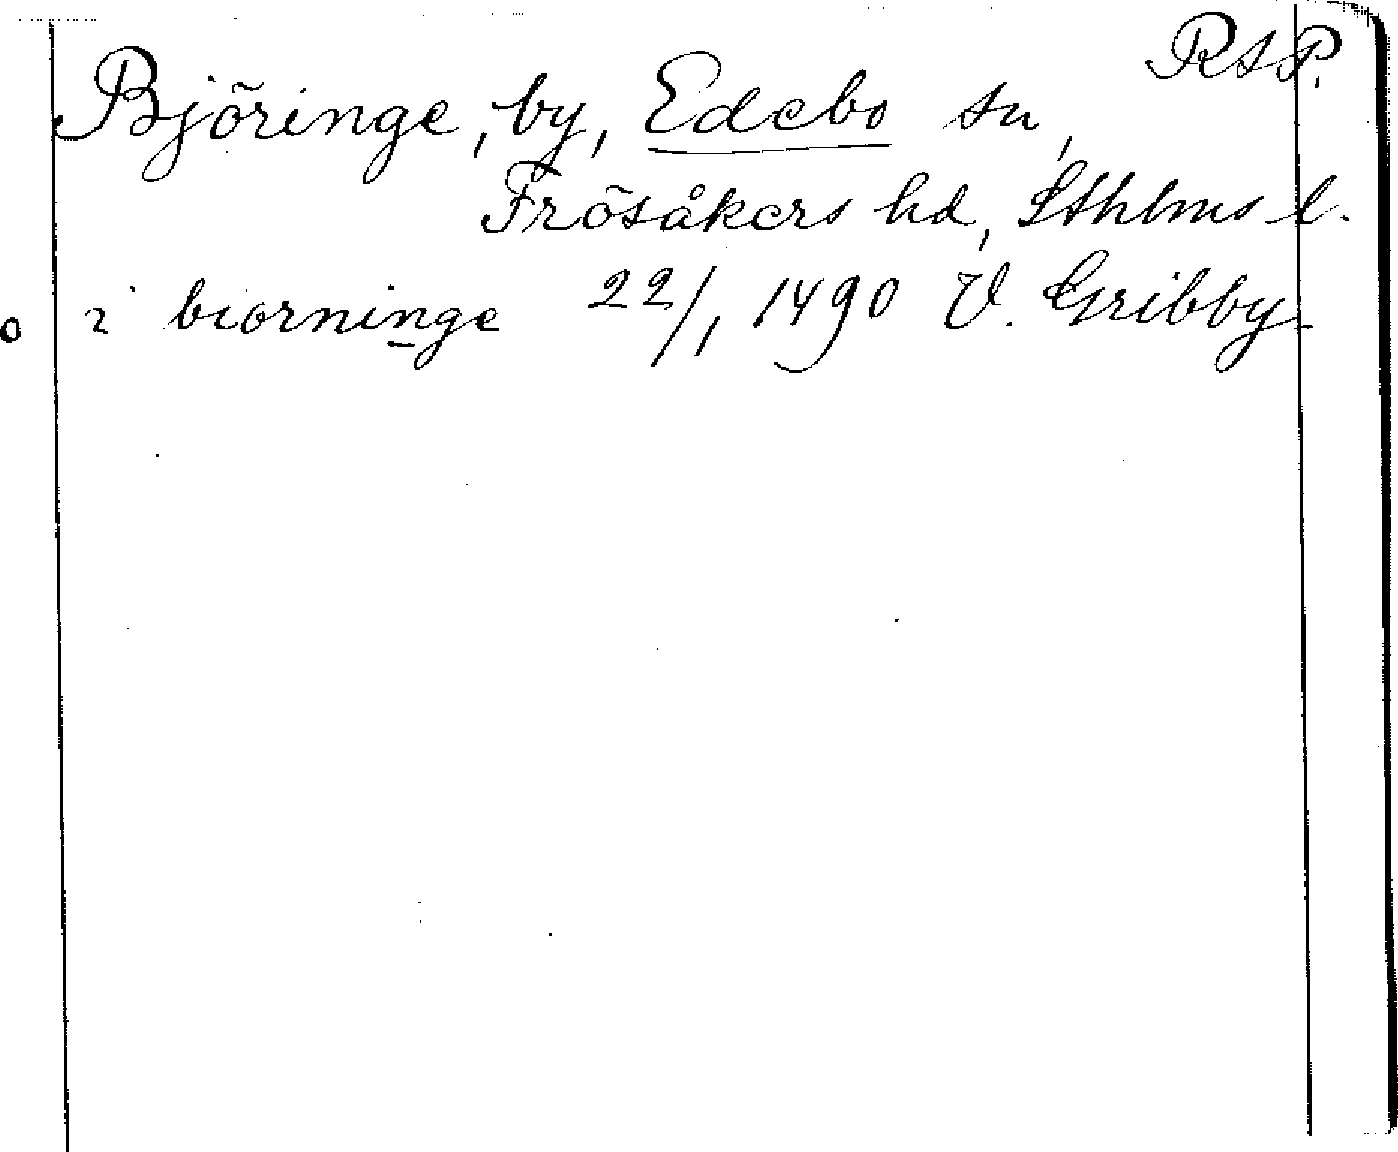 RAP.
Björinge, by, Edebo sn,
Frösåkers hd, Sthlms l.
i biorninge 22/1 1490 V. Gribby